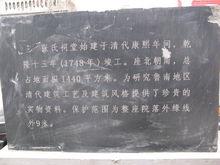 张氏祠堂始建于清代康熙年间，乾
隆十三年（1748年）竣工。座北朝南，总
占地面积1440平方米。为研究鲁南地区
清代建筑工艺及建筑风格提供了珍贵的
实物资料。保护范围为整座院落外缘线
外9米。